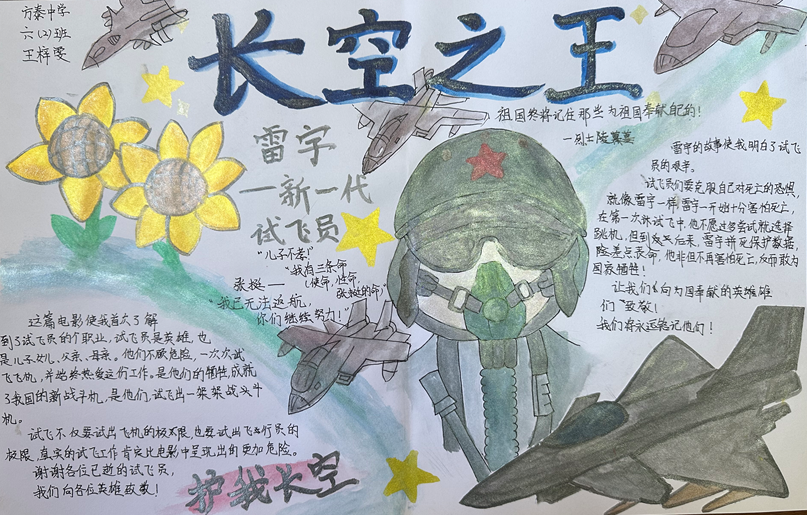 方泰中学
六(2)班
王梓雯
长空之王
祖国终将记住那些为祖国奉献自己的!
—烈士
雷宇
—新一代
试飞员
"儿子不孝!"
"我有三条命
(使命,性命,
张挺的命)"
张挺——
"我已无法返航,
你们继续努力!"
雷宇的故事使我明白了试飞
员的艰辛。
试飞员们要克服自己对死亡的恐惧,
就像雷宇一样,雷宇一开始十分害怕死亡,
在第一次外试飞中,他不愿过多尝试就选择
跳机,但到后来,雷宇拼死保护数据,
险差点丧命,他非但不再害怕死亡,反而敢为
国家牺牲!
让我们向为国奉献的英雄
们致敬!
我们将永远铭记他们!
这篇电影使我首次了解
到了试飞员的个职业,试飞员是英雄,也
是儿子、女儿、父亲、母亲。他们不顾危险,一次次试
飞飞机,并始终热爱这份工作。是他们的牺牲,成就
了我国的新战斗机,是他们,试飞出一架架战斗斗
机。
试飞不仅要试出飞机的极限,也要试出飞行员的
极限,真实的试飞工作肯定比电影中呈现出的更加危险。
谢谢各位已逝的试飞员,
我们向各位英雄致敬!
护我长空